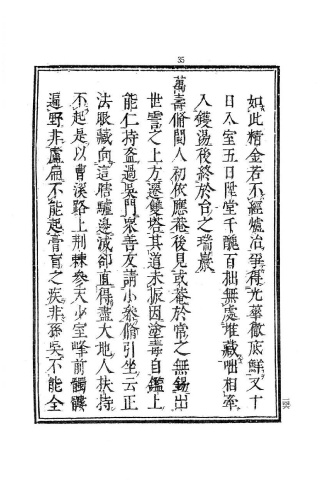 35
如此精金若不經爐冶爭得光華徹底鮮又十
日入室五日陞堂千醜百拙無處堆藏咄相牽
入鑊湯後終於台之瑞巖
萬壽脩閩人初依應菴後見或菴於常之無錫出
世雪之上方遷雙塔其道未振因塗毒自鑑上
能仁持盋過吳門眾善友請小參脩引坐云正
法眼藏向這瞎驢邊滅卻直得盡大地人扶持
不起是以曹溪路上荊棘參天少室峰前髑髏
遍野非盧扁不能起膏肓之疾非孫吳不能全